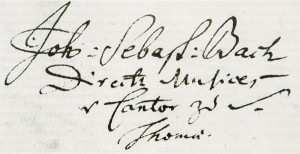 Joh: Sebast: Bach
Direct: Musices
v Cantor zu S.
Thomæ.